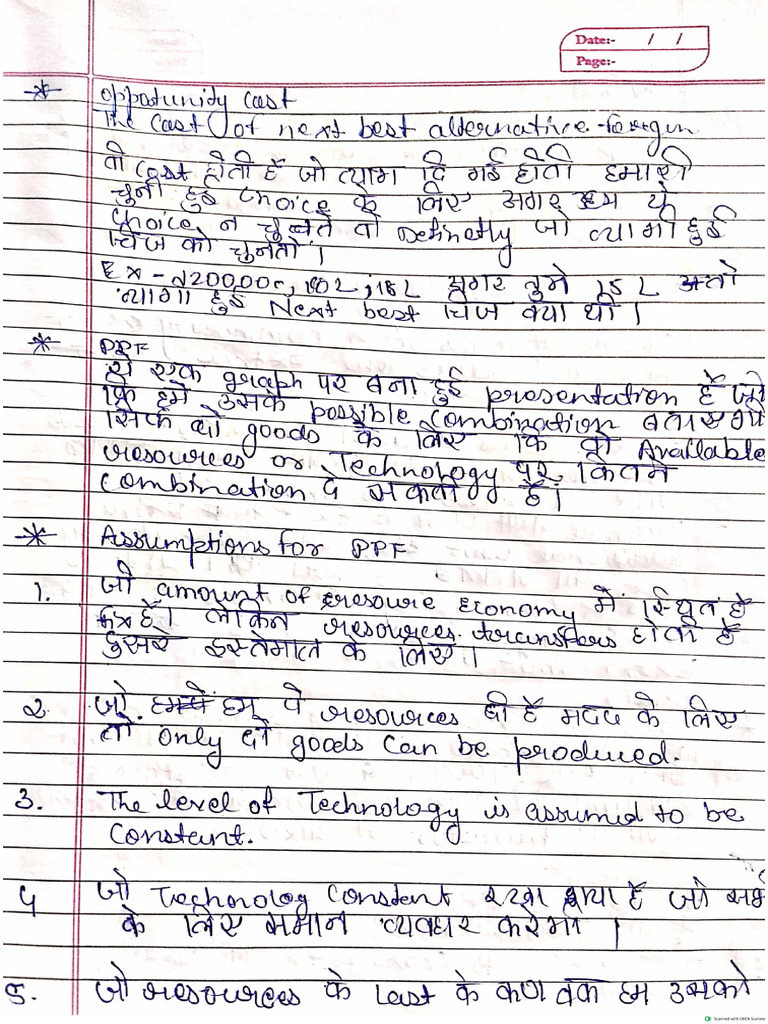 Date:- / /
Page:-
* Oppotunity cast
The cast of next best alternative forgun
वो cast होती हैं जो त्याग दि गई होती हमारी
चुनी हुई choice के लिए अगर हम ये
choice न चुनते तो Definetly जो त्यागी हुई
चिज को चुनतो।
Ex - 20L, 18L अगर तुमे 15 L
त्यागा हुई Next best चिज क्या थी।
* PPF
ये एक graph पर बना हुई presentation हैं जो
कि हमे उसके possible combination बताएगे
सिर्फ दो goods के लिए कि वो Available
resources or Technology पर कितने
combination दे सकता हैं।
* Assumptions for PPF
1. जो amount of resoure Economy में स्थित हैं
fix हैं। लेकिन resources transfers होता हैं
दुसरे इस्तेमाल के लिए।
2. जो हम ये resources दी हैं मदद के लिए
तो only दो goods can be produced.
3. The level of Technology is assumed to be
constant.
4 जो Technolog constent रखा गया हैं जो सभ
के लिए समान व्यवहार करेगी।
5. जो resources के last के कण तक हम उसको
Scanned with OKEN Scanner